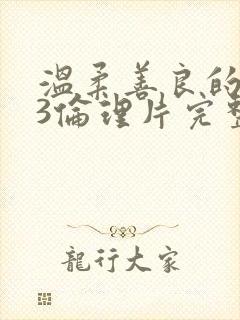 溫柔善良的
3倫理片完整
龍行大家